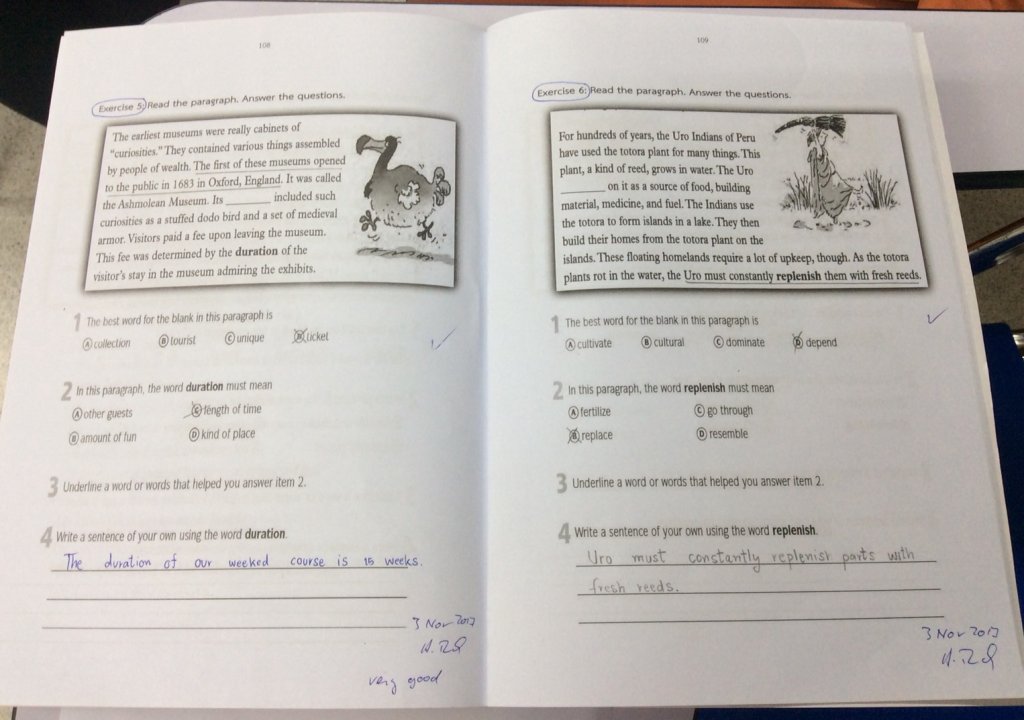 108
Exercise 5: Read the paragraph. Answer the questions.
The earliest museums were really cabinets of
"curiosities." They contained various things assembled
by people of wealth. The first of these museums opened
to the public in 1683 in Oxford, England. It was called
the Ashmolean Museum. Its ________ included such
curiosities as a stuffed dodo bird and a set of medieval
armor. Visitors paid a fee upon leaving the museum.
This fee was determined by the duration of the
visitor's stay in the museum admiring the exhibits.
1 The best word for the blank in this paragraph is
A collection B tourist C unique D ticket
2 In this paragraph, the word duration must mean
A other guests C length of time
B amount of fun D kind of place
3 Underline a word or words that helped you answer item 2.
4 Write a sentence of your own using the word duration.
The duration of our weeked course is 15 weeks.
3 Nov 2017
very good
109
Exercise 6: Read the paragraph. Answer the questions.
For hundreds of years, the Uro Indians of Peru
have used the totora plant for many things. This
plant, a kind of reed, grows in water. The Uro
________ on it as a source of food, building
material, medicine, and fuel. The Indians use
the totora to form islands in a lake. They then
build their homes from the totora plant on the
islands. These floating homelands require a lot of upkeep, though. As the totora
plants rot in the water, the Uro must constantly replenish them with fresh reeds.
1 The best word for the blank in this paragraph is
A cultivate B cultural C dominate D depend
2 In this paragraph, the word replenish must mean
A fertilize C go through
B replace D resemble
3 Underline a word or words that helped you answer item 2.
4 Write a sentence of your own using the word replenish.
Uro must constantly replenish parts with
fresh reeds.
3 Nov 2017